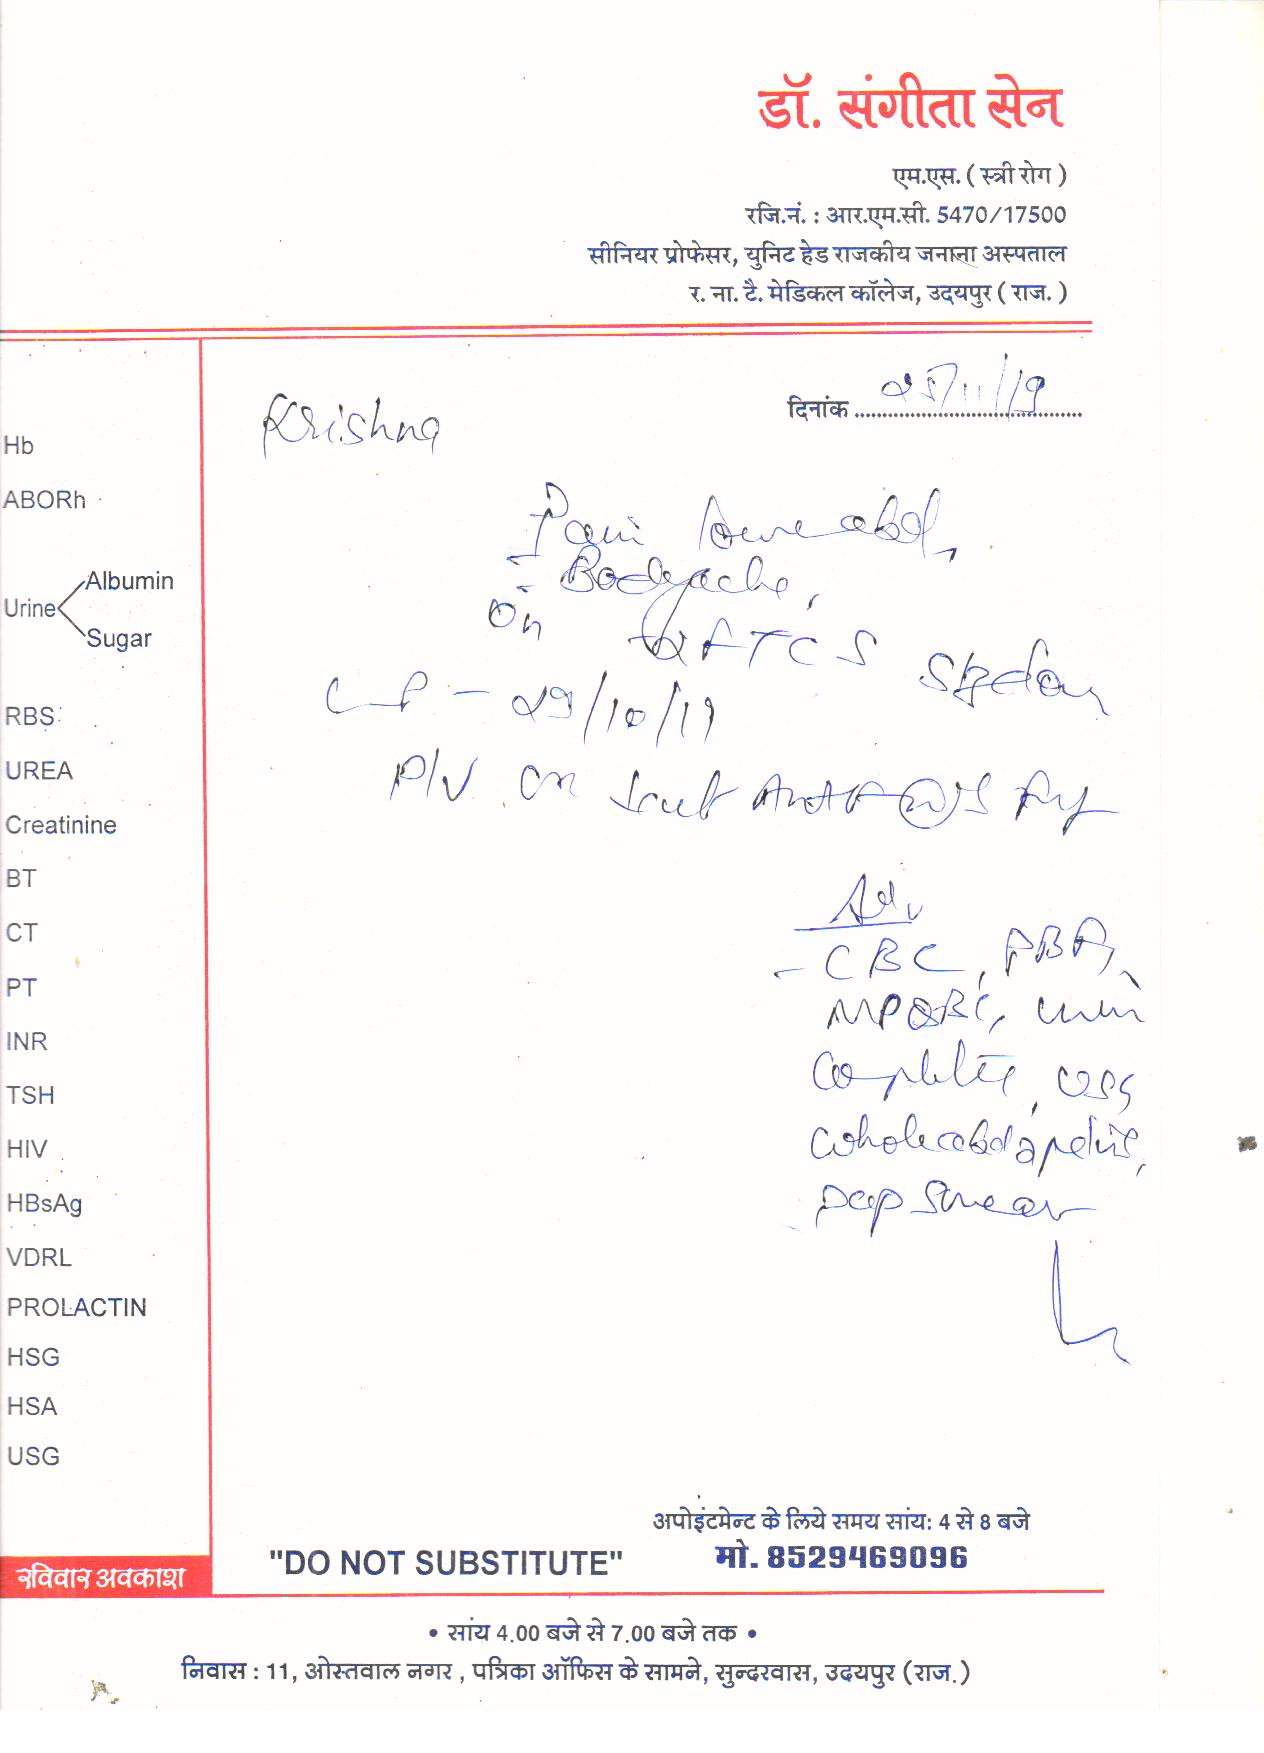 डॉ. संगीता सेन
एम.एस. ( स्त्री रोग )
रजि.नं. : आर.एम.सी. 5470/17500
सीनियर प्रोफेसर, युनिट हेड राजकीय जनाना अस्पताल
र. ना. टै. मेडिकल कॉलेज, उदयपुर ( राज. )
दिनांक 25/11/19
Krishna
Hb
ABORh
Urine
Albumin
Sugar
RBS
UREA
Creatinine
BT
CT
PT
INR
TSH
HIV
HBsAg
VDRL
PROLACTIN
HSG
HSA
USG
Pain abd,
Bodyache,
on
- 29/10/19
P/V
Adv
- CBC, PBF,
MPQBC,
complete, USG
whole abd & pelvis,
Pap smear
अपोइंटमेन्ट के लिये समय सांय: 4 से 8 बजे
"DO NOT SUBSTITUTE" मो. 8529469096
रविवार अवकाश
• सांय 4.00 बजे से 7.00 बजे तक •
निवास : 11, ओस्तवाल नगर , पत्रिका ऑफिस के सामने, सुन्दरवास, उदयपुर (राज.)